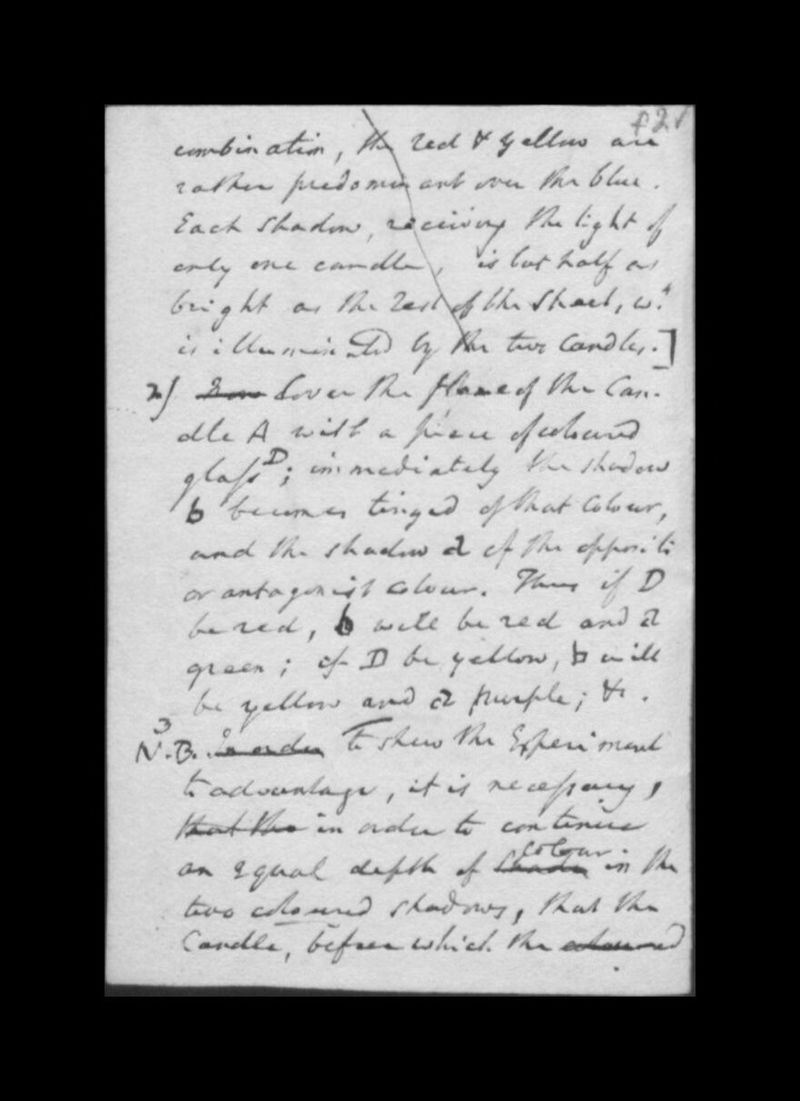 f21
combination, the red & yellow are
rather predominant over the blue.
Each shadow, receiving the light of
only one candle, is but half as
bright as the rest of the sheet, wh.
is illuminated by the two Candles.]
2) Cover the flame of the Can-
dle A with a piece of coloured
glass D; immediately the shadow
b becomes tinged of that Colour,
and the shadow a of the opposite
or antagonist colour. Thus if D
be red, b will be red and a
green; if D be yellow, b will
be yellow and a purple; &c.
3
N.B. In order To shew the Experiment
to advantage, it is necessary,
that the in order to continue
colour
an equal depth of shade in the
two coloured shadows, that the
Candle, before which the coloured